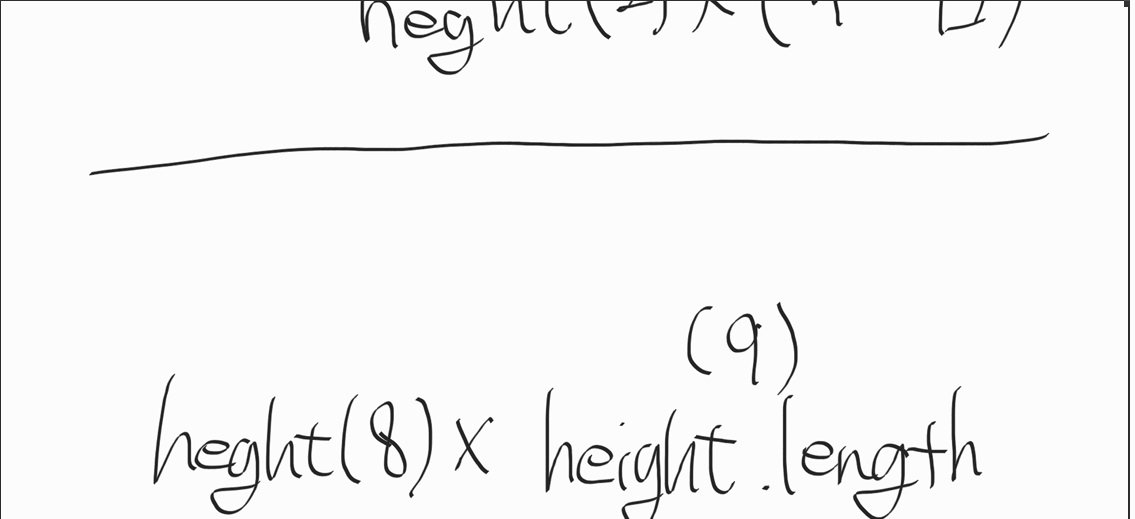 heght(
(9)
heght(8) x height.length